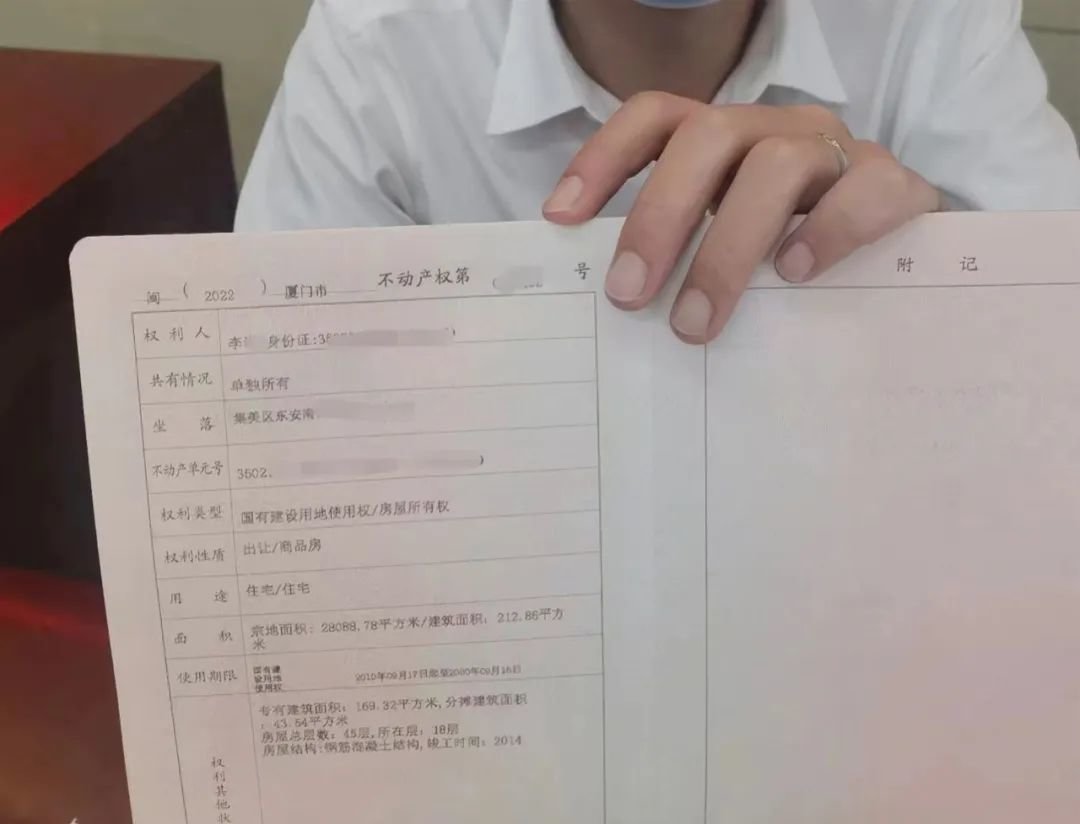 闽（2022）厦门市 不动产权第 号
附 记
权利人 李 身份证:35
共有情况 单独所有
坐 落 集美区东安南
不动产单元号 3502
权利类型 国有建设用地使用权/房屋所有权
权利性质 出让/商品房
用 途 住宅/住宅
面 积 宗地面积: 28088.78平方米/建筑面积: 212.86平方
米
使用期限 国有建
设用地
使用权
2010年09月17日起至2080年09月16日
专有建筑面积: 169.32平方米,分摊建筑面积
: 43.54平方米
房屋总层数: 45层,所在层: 18层
房屋结构:钢筋混凝土结构,竣工时间: 2014
权
利
其
他
状